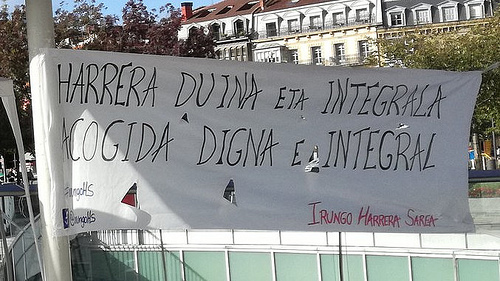 HARRERA DUINA ETA INTEGRALA
ACOGIDA DIGNA E INTEGRAL
#irungoHS
@irungoHS
IRUNGO HARRERA SAREA